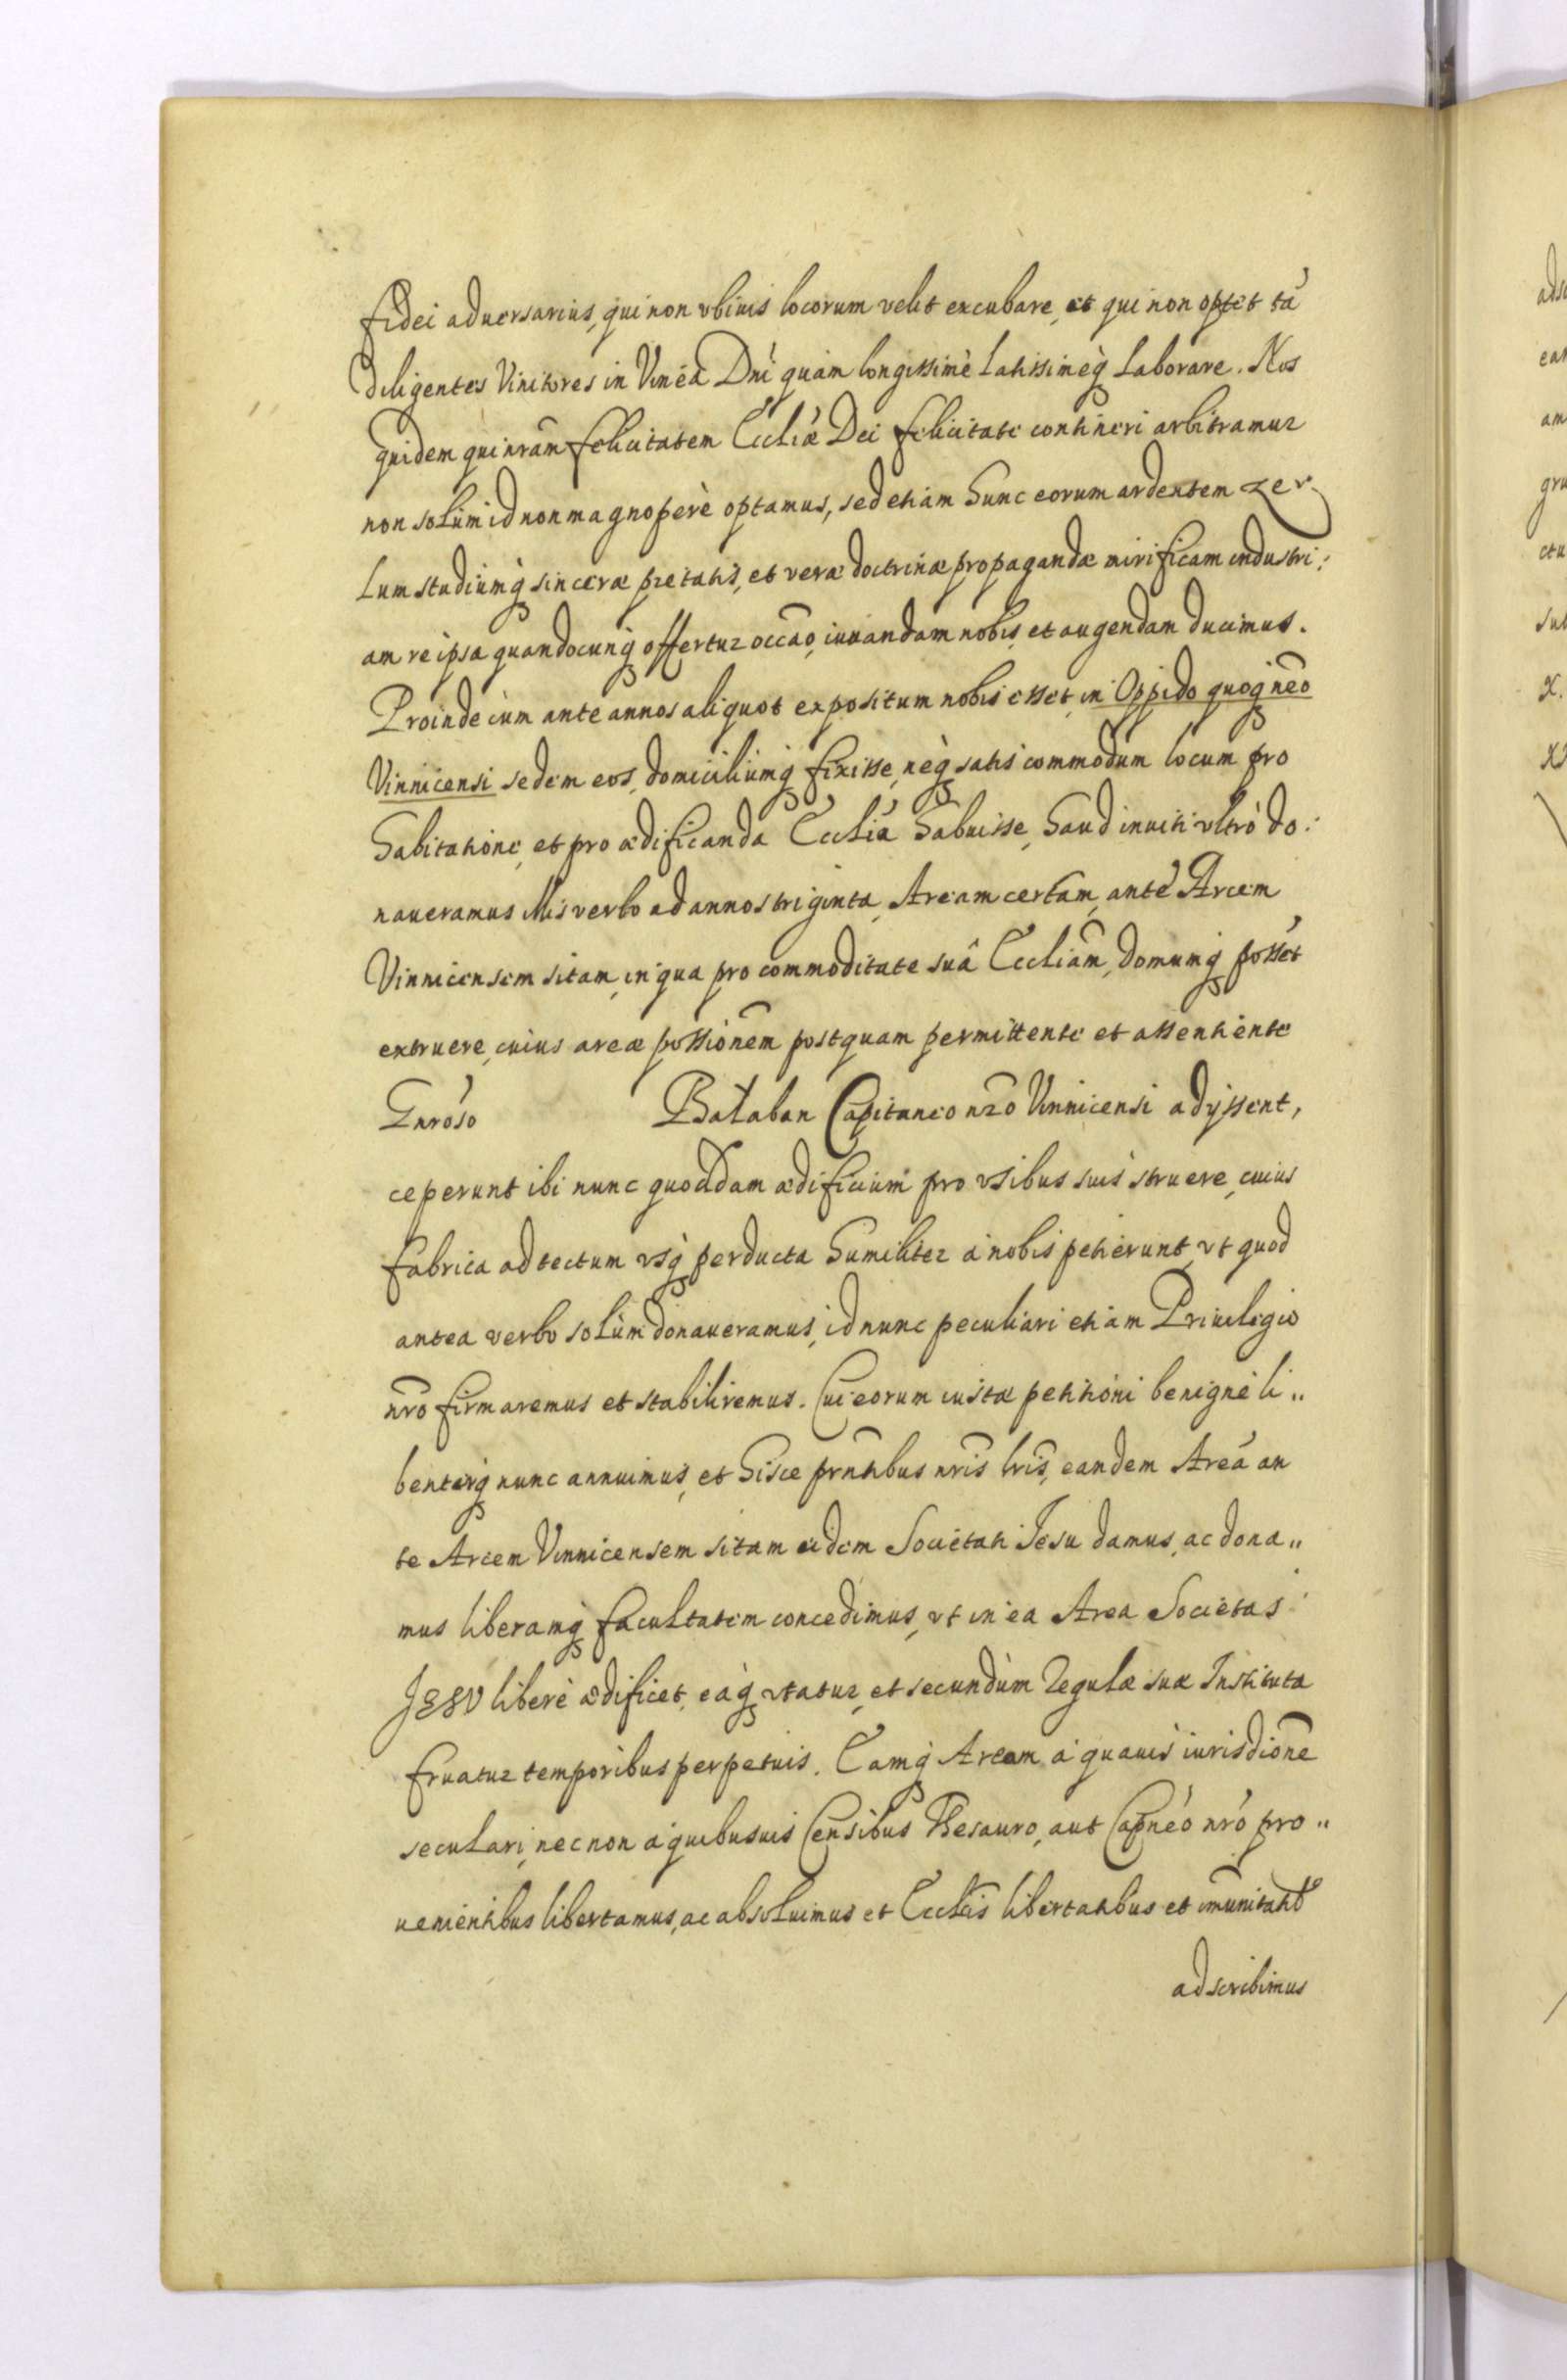 fidei aduersarius, qui non vbiuis locorum velit excubare, et qui non optet tā
diligentes Vinitores in Vineā Dni quàm longissimè Latissimeq́ Laborare. Nos
quidem qui nrām felicitatem Eccliæ Dei felicitate contineri arbitramur
non solùm id non magnoperè optamus, sed etiam hunc eorum ardentem ze
Lum studiumq́ sinceræ pietatis, et veræ doctrinæ propagandæ mirificam industri:
am re ipsa quandocunq́ offertur occāo, iuuandam nobis, et augendam ducimus.
Proinde cùm ante annos aliquot expositum nobis esset, in Oppido quoq́ nrō
Vinnicensi sedem eos, domiciliumq́ fixisse, neq́ satis commodum locum pro
habitatione, et pro ædificanda Eccliā habuisse, haud inuiti vltrò do:
naueramus illis verbo ad annos triginta, Aream certam, ante Arcem
Vinnicensem sitam, in qua pro commoditate suâ Eccliām, domumq́ posset
extruere, cuius areæ possionēm postquam permittente et assentiente
Gnróso Bałaban Capitaneo nrō Vinnicensi adijssent,
ceperunt ibi nunc quoddam ædificium pro vsibus suis struere, cuius
fabrica ad tectum vsq́ perducta humiliter à nobis petierunt, vt quod
antea verbo solùm donaueramus, id nunc peculiari etiam Priuilegio
nrō firmaremus et stabiliremus. Cui eorum iustæ petitioni benignè li„
benterq́ nunc annuimus, et hisce prntibus nris lris, eandem Areā an
te Arcem Vinnicensem sitam eidem Societati Iesu damus, ac dona„
mus liberamq́ facultatem concedimus, vt in ea Area Societas
JESV liberè ædificet, eaq́ vtatur, et secundùm Regulæ suæ Instituta
fruatur temporibus perpetuis. Eamq́ Aream à quauis iurisdione
seculari, necnon à quibusuis Censibus Thesauro, aut Capnéo nró pro„
uenientibus libertamus, ac absoluimus et Ecclcis libertatibus et imunitatib
adscribimus